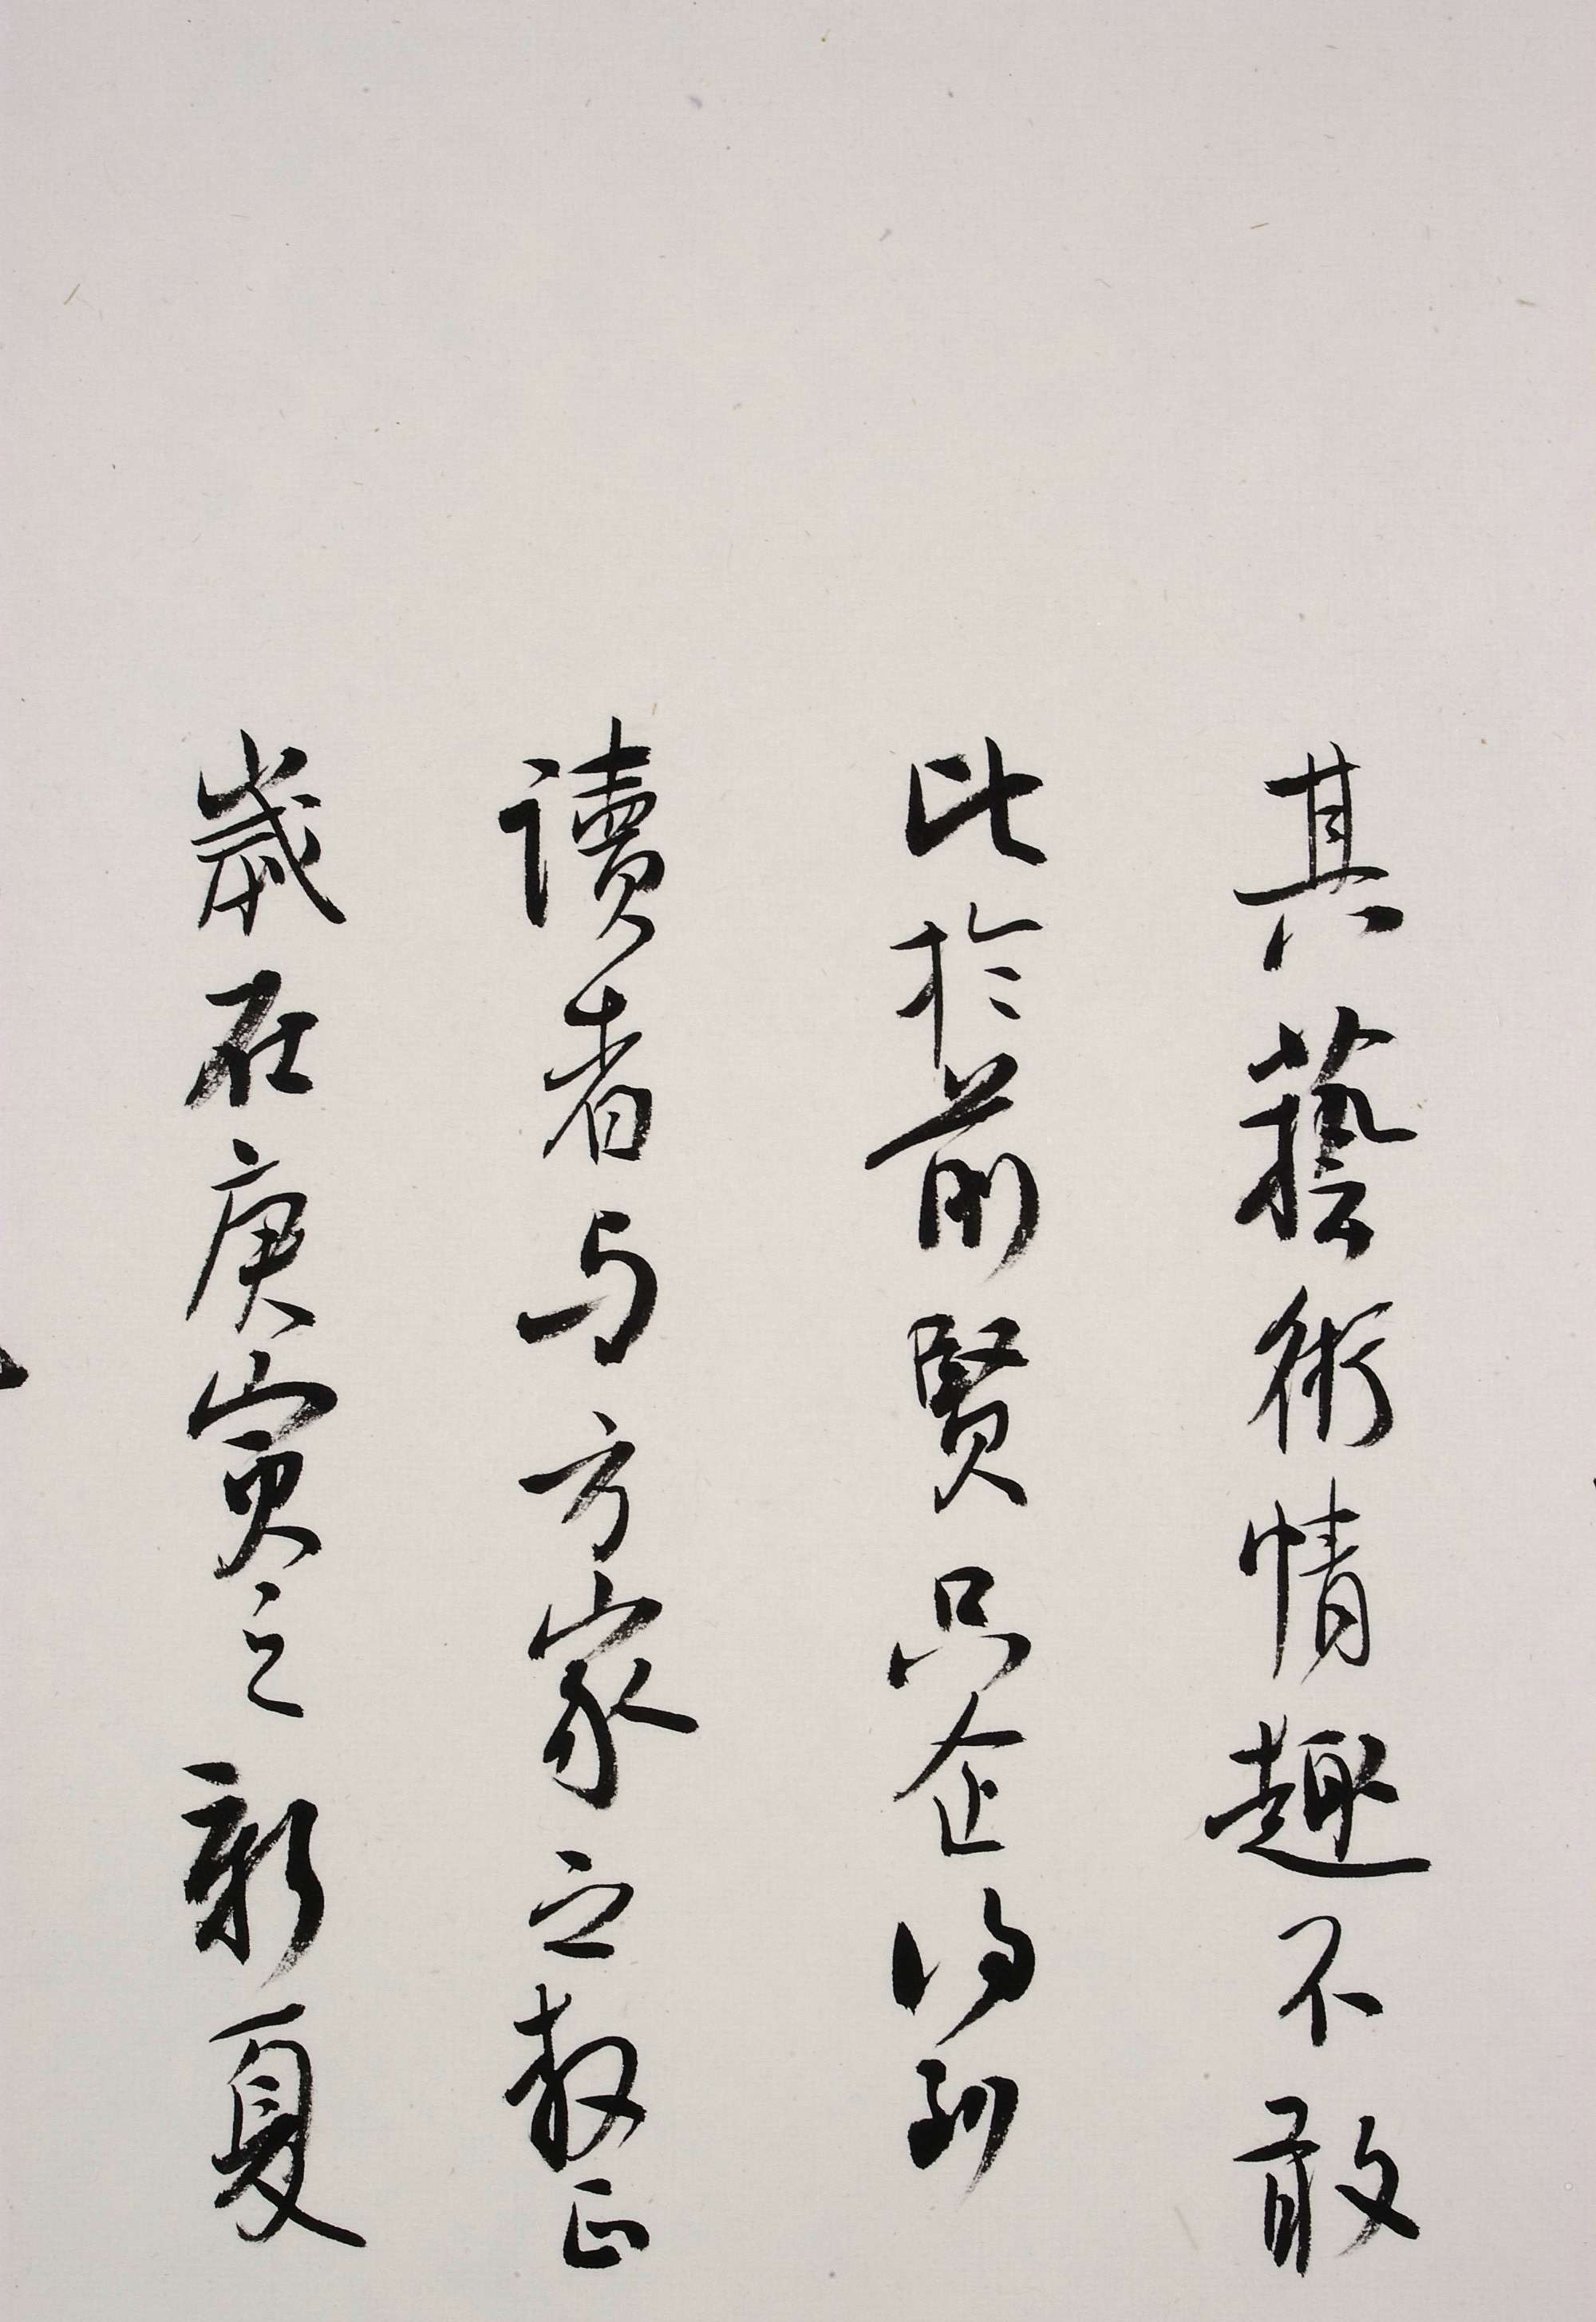 其藝術情趣不敢
比於前賢只企得到
讀者与方家之教正
歲在庚寅之新夏